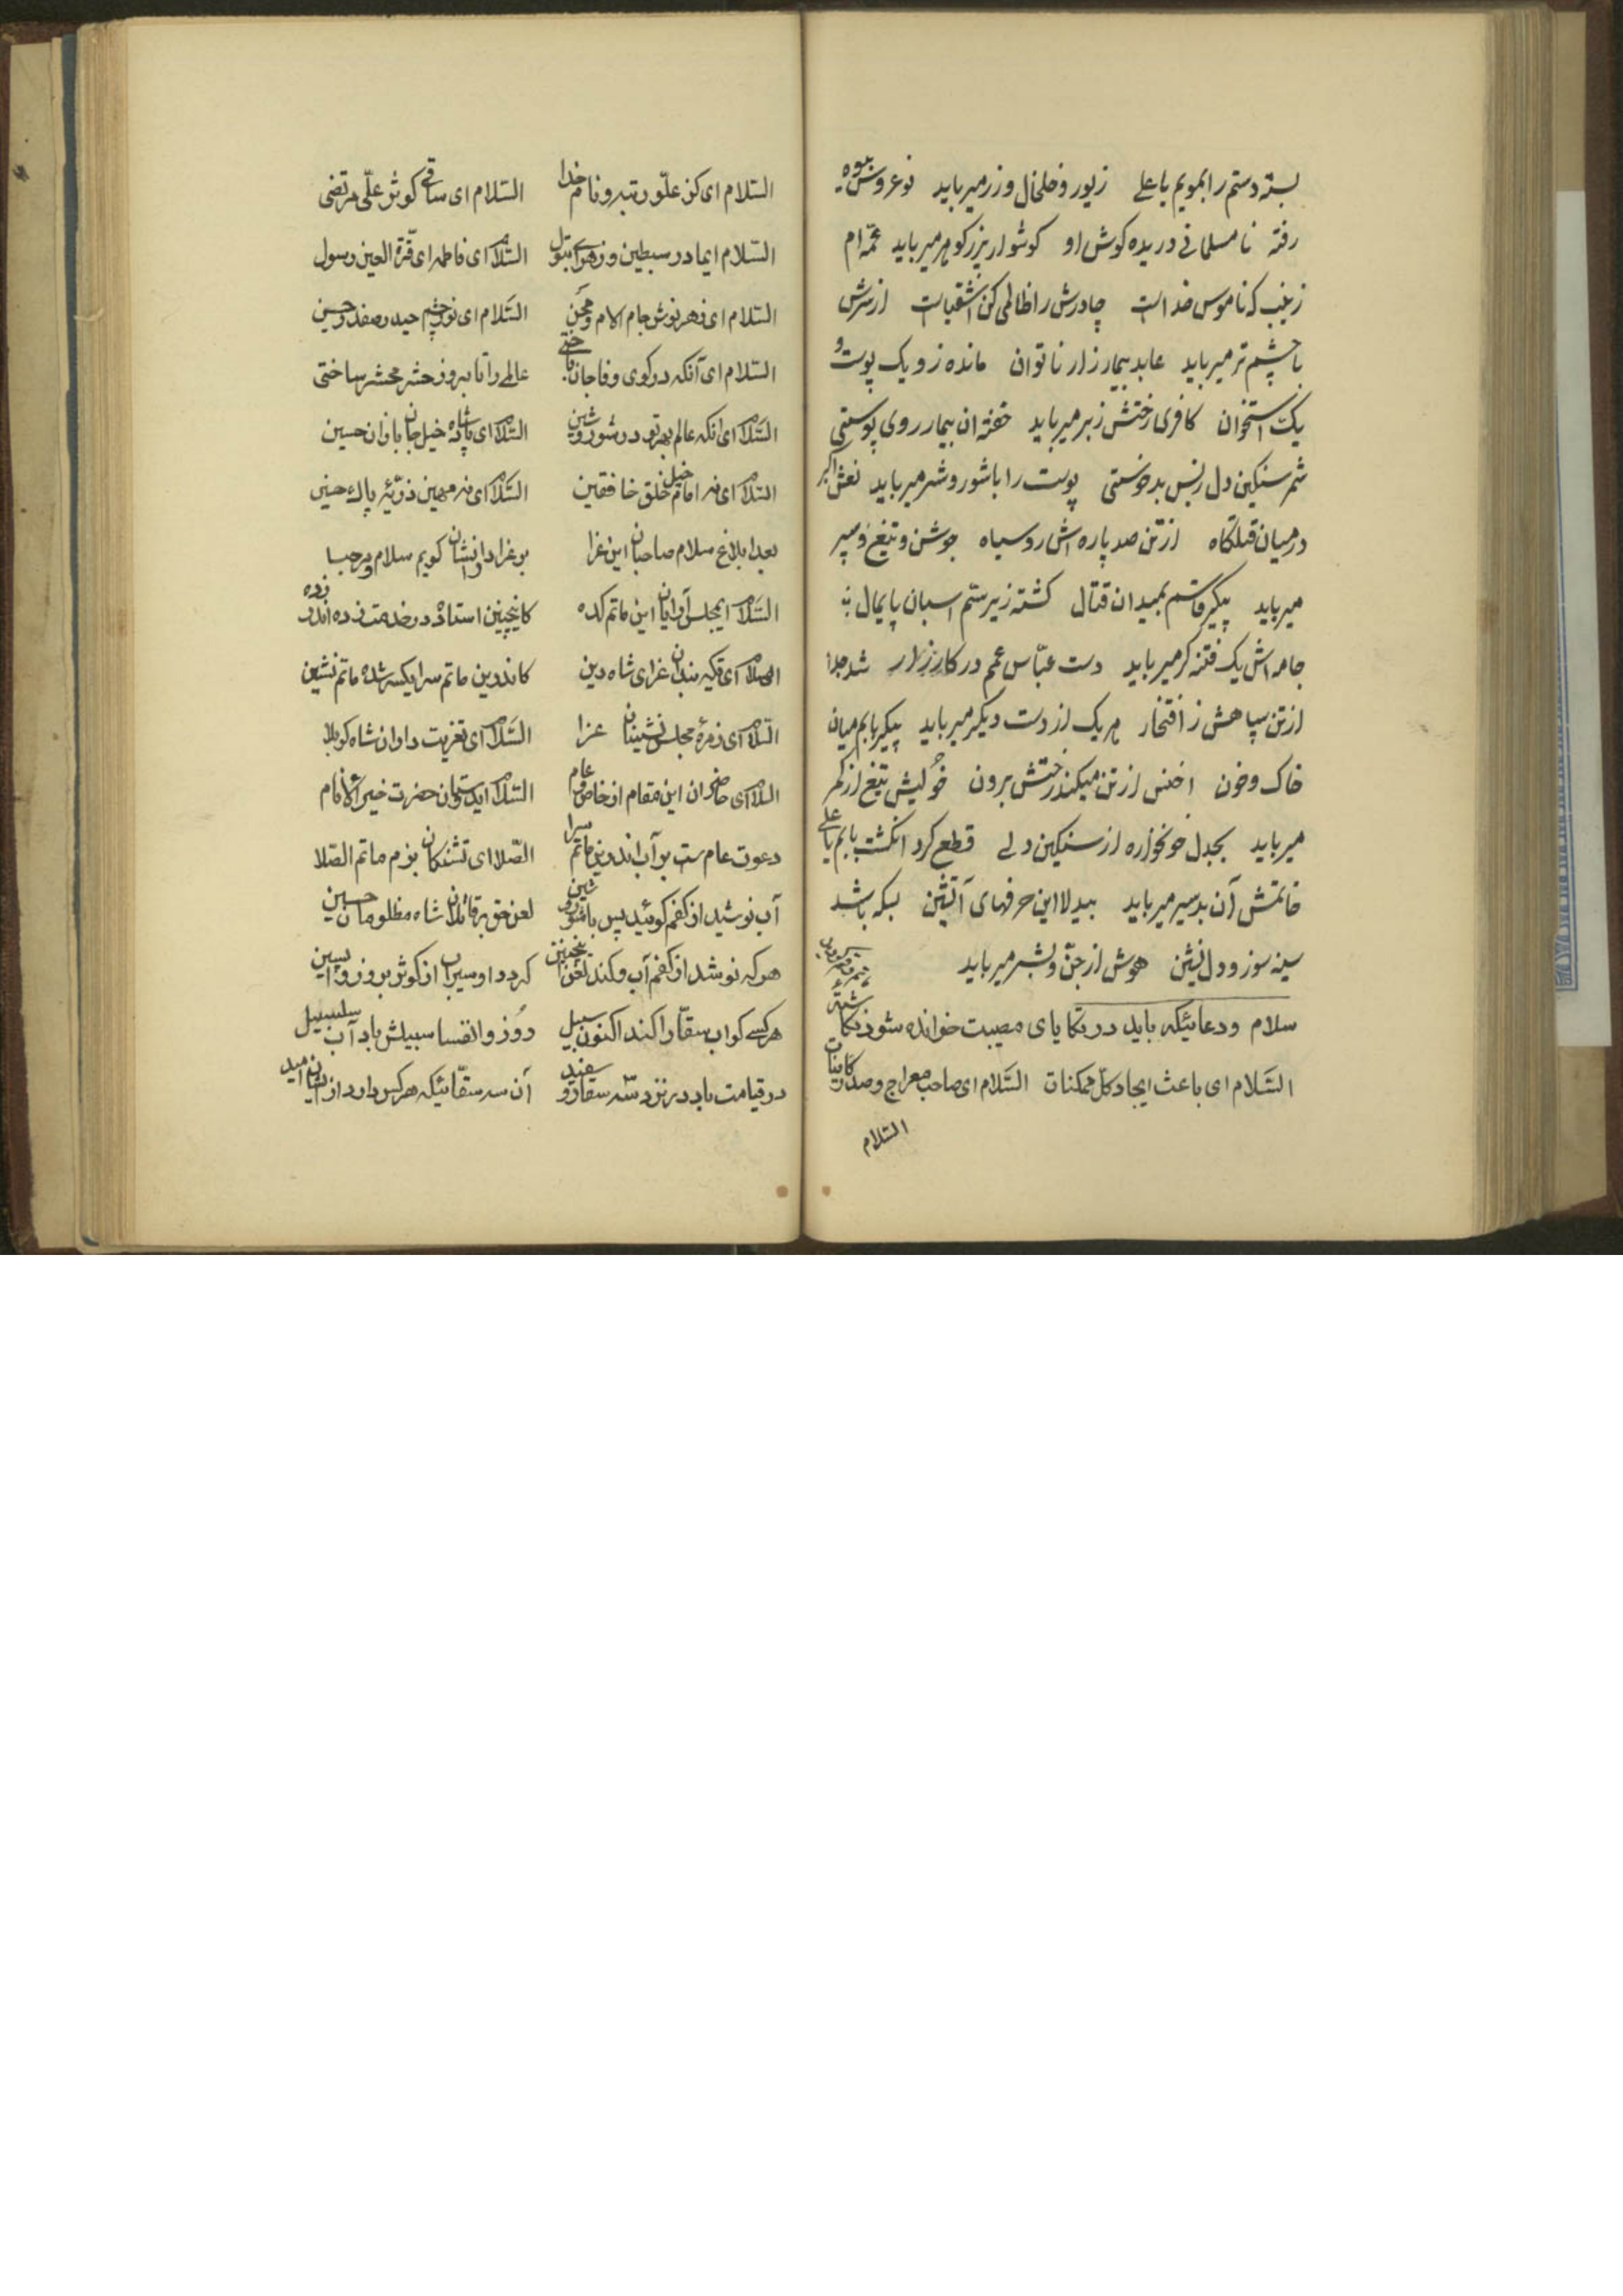 بسته دستم را بمویم یا علی زیور و خلخال و زر میرباید نوعروش بیوه
رفته نامسلمانی دریده کوش او کوشوار پرزرکوهر میرباید عمّه‌ام
زینب که ناموس خداست چادرش را ظالمی کن اشقیاست از سرش
با چشم تر میرباید عابد بیمار زار ناتوان مانده زو یک پوست و
یک استخوان کافری رختش زبر میرباید خفته ان بیمار روی پوستی
شمر سنکین دل زبس بدخوستی پوست را با شور و شر میرباید نعش اکبر
درمیان قتلکاه از تن صد پاره‌اش رو سیاه جوشن و تیغ و سپر
میرباید پیکر قاسم بمیدان قتال کشته زیر سم اسبان پایمال
جامه‌اش یک فتنه کر میرباید دست عبّاس عمم در کارزار شد جدا
از تن سپاهش ز افتخار هر یک از دست دیکر میرباید پیکر بابم میان
خاک و خون اخنس از تن میکند رختش برون خولیش تیغ از کمر
میرباید بجدل خونخواره از سنکین دلی قطع کرد انکشت بابم یا علی
خاتمش آن بدسیر میرباید بیدلا این حرفهای آتشین بسکه باشد
سینه سوز و دل نشین هوش از جنّ و بشر میرباید
سلام ودعائیکه باید در تکایای مصیبت خوانده شود
السّلام ای باعث ایجاد کل ممکنات السّلام ای صاحب معراج و صدر کاینات
السّلام
السّلام ای کز علّو رتبه و نام خدا السّلام ای ساقی کوثر علّی مرتضی
السّلام ایمادر سبطین و زهرای بتول السّلام ای فاطمه ای قرّة العین رسول
السّلام ای زهر نوش جام الام و محن السّلام ای نور چشم حیدر صفدر حسین
السّلام ای آنکه در کوی وفا جان باختی عالمی را تا بروز حشر محشر ساختی
السّلام ای انکه عالم بهر تو در شور و شین السّلام ای پادشاه خیل جانبازان حسین
السّلام ای نه امام خلق خافقین السّلام ای نه مهین ذرّیّه پاک حسین
بعد ابلاغ سلام صاحبان این عزا بر عزادارانشان کویم سلام و مرحبا
السّلام ایمجلس آرایان این ماتم کده کاینچنین استاده در خدمت زده اندر زده
السّلام ای تکیه بندان عزای شاه دین کاندرین ماتم سرا یکسر شده ماتم نشین
السّلام ای زمرهٔ مجلس نشینان عزا السّلام ای تعزیت داران شاه کربلا
السّلام ای حاضران این مقام از خاص و عام السّلام ایدوستان حضرت خیر الانام
دعوت عام ست بر آب اندرین ماتم سرا الصّلا ای تشنکان بزم ماتم الصّلا
آب نوشید از کفم کوئید پس با شور و شین لعن حق بر قاتلان شاه مظلومان حسین
هر که نوشد از کفم آب و کند لعن اینچنین کردد او سیراب از کوثر بروز واپسین
هر کسی کو اب سقّا را کند اکنون سبیل روز وانفسا سبیلش باد آب سلسبیل
در قیامت باد در نزد شه سقا رو سفید آن سه سقّائیکه هر کس دارد از ایشان امید